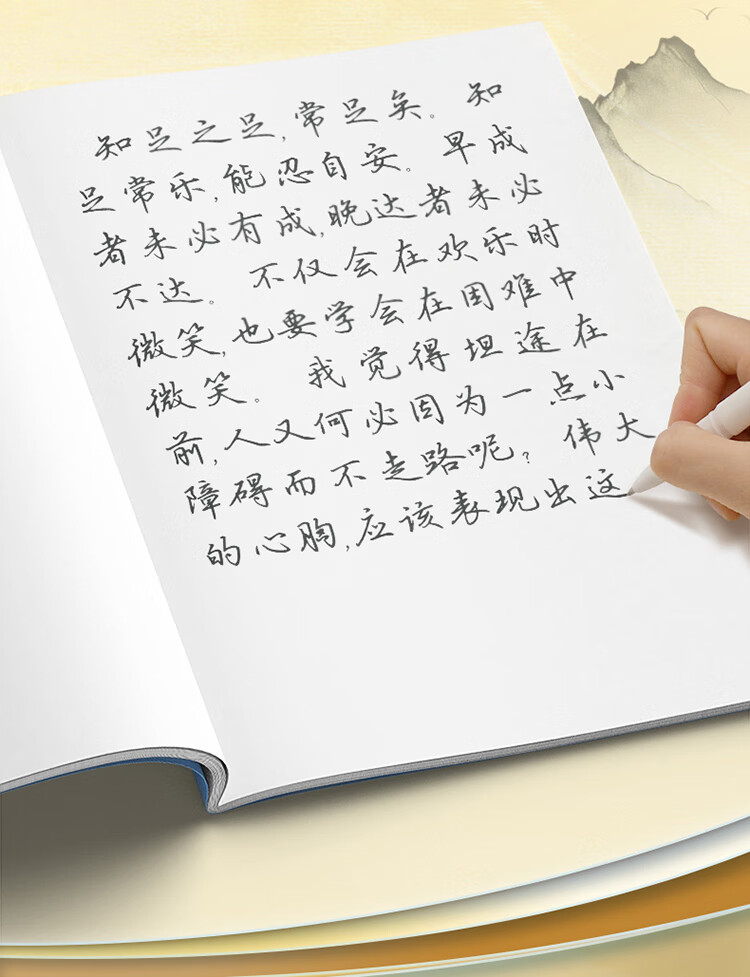 知足之足,常足矣。知
足常乐,能忍自安。早成
者未必有成,晚达者未必
不达。不仅会在欢乐时
微笑,也要学会在困难中
微笑。我觉得坦途在
前,人又何必因为一点小
障碍而不走路呢?伟大
的心胸,应该表现出这